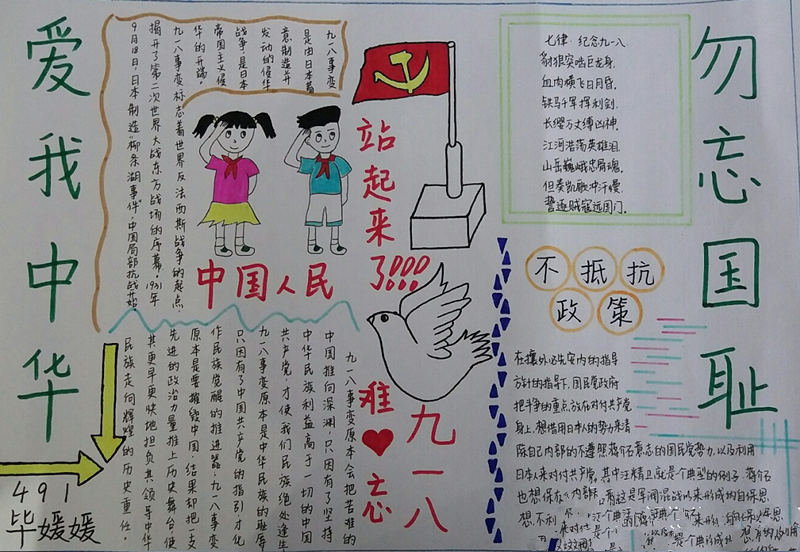 爱我中华
勿忘国耻
九一八事变
是由日本蓄
意制造并
发动的侵华
战争,是日本
帝国主义侵
华的开端。
九一八事变标志着世界反法西斯战争的起点,
揭开了第二次世界大战东方战场的序幕。1931年
9月18日,日本制造"柳条湖事件",中国局部抗战开始。
站起来了!!!!
中国人民
七律 纪念九一八
豺狼突啮巨龙身,
血肉横飞日月昏。
铁马千军挥利剑,
长缨万丈缚凶神。
江河浩荡英雄泪,
山岳巍峨忠烈魂。
但奏凯歌冲汗漫
誓逐贼寇远国门。
不抵抗
政策
难忘
九一八
九一八事变原本会把苦难的
中国推向深渊,只因有了坚持
中华民族利益高于一切的中国
共产党,才使我们民族绝处逢生。
九一八事变原本是中华民族的耻辱
只因有了中国共产党的指引才化
作民族觉醒的推进器。九一八事变
原本是要摧毁中国,结果却把一支
先进的政治力量推上历史舞台,使
其更早更快地担负其领导中华
民族走向辉煌的历史重任。
在攘外必先安内的指导
方针的指导下,国民党政府
把斗争的重点放在对付共产党
身上,想借用日本人的势力来清
除自己内部的不遵照蒋介石意志的国民党势力,以及利用
日本人来对付共产党,其中汪精卫就是个典型的例子,蒋介石
491
毕媛媛